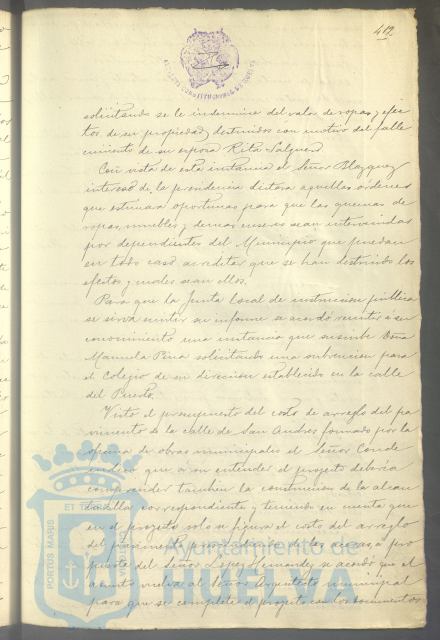 412
solicitando se le indemnice del valor de ropas y efec
tos de su propiedad, destruidos con motivo del falle
cimiento de su esposa Rita Salguero.
Con vista de esta instancia el Señor Blazquez
interesó de la presidencia dictara aquellas órdenes
que estimara oportunas para que las quemas de
ropas, muebles y demas enseres sean intervenidas
por dependientes del Municipio que puedan
en todo caso acreditar que se han destruido los
efectos y cuales sean ellos.
Para que la Junta local de instruccion pública
se sirva emitir su informe se acordó remitir á su
conocimiento una instancia que suscribe Doña
Manuela Peña solicitando una subvencion para
el Colegio de su direccion establecido en la calle
del Puerto.
Visto el presupuesto del costo de arreglo del pa
vimento de la calle de San Andres formado por la
oficina de obras municipales el Señor Conde
indicó que á su entender el proyecto debería
comprender tambien la construccion de la alcan
tarilla correspondiente y teniendo en cuenta que
en el proyecto solo se figura el costo del arreglo
del pavimento prescindiendo de las aceras, á pro
puesta del Señor Lopez Hernandez se acordó que el
asunto vuelva al Señor Arquitecto municipal
para que se complete el proyecto con los documentos
PORTUS MARIS
ET TERRÆ
Ayuntamiento de
HUELVA